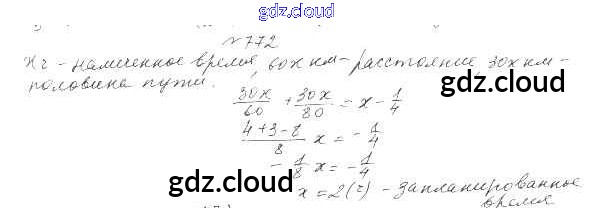 gdz.cloud
№772
x г - намеченное время, 60x км - расстояние, 30x км -
половина пути.
gdz.cloud
30x/60 + 30x/80 = x - 1/4
(4+3-8)/8 x = - 1/4
- 1/8 x = - 1/4
gdz.cloud
x = 2 (г) - запланированное
время
gdz.cloud